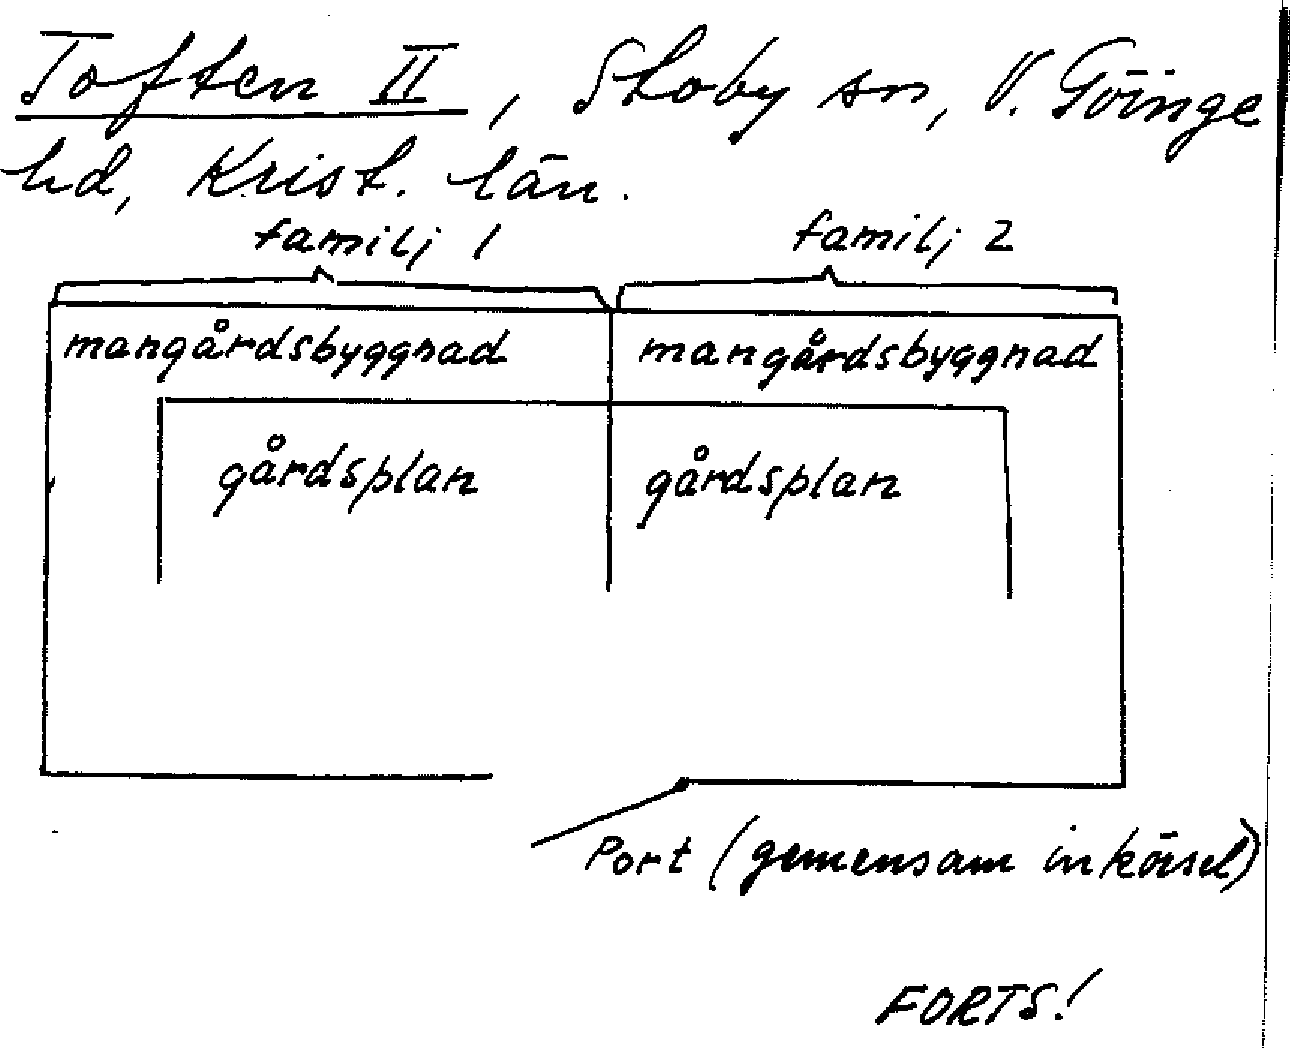 Toften II, Stoby sn, V. Göinge
hd, Krist. län.
familj 1 familj 2
mangårdsbyggnad mangårdsbyggnad
gårdsplan gårdsplan
Port (gemensam inkörsel)
FORTS!